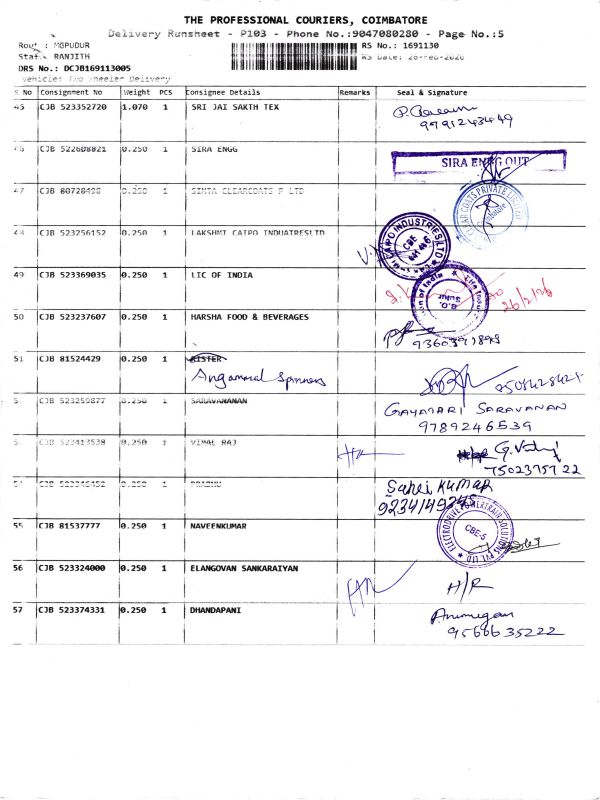 THE PROFESSIONAL COURIERS, COIMBATORE
Delivery Runsheet - P103 - Phone No.:9047080280 - Page No.:5
Rout : MGPUDUR
RS No.: 1691130
Staf : RANJITH
RS Date: 26-Feb-2026
DRS No.: DCJB169113005
Vehicle: Two Wheeler Delivery
S No Consignment No Weight PCS Consignee Details Remarks Seal & Signature
45 CJB 523352720 1.070 1 SRI JAI SAKTH TEX
9791243449
46 CJB 522608821 0.250 1 SIRA ENGG
SIRA ENGG OUT
47 CJB 80728498 0.250 1 SIMTA CLEARCOATS P LTD
CLEAR COATS PRIVATE LIMITED
48 CJB 523256152 0.250 1 LAKSHMI CAIPO INDUATRESLTD
CAIPO INDUSTRIES LTD
CBE
49 CJB 523369035 0.250 1 LIC OF INDIA
26/2/26
50 CJB 523237607 0.250 1 HARSHA FOOD & BEVERAGES
51 CJB 81524429 0.250 1 BISTER
Angamnal Spinners
5 CJB 523259877 0.250 1 SARAVANANAN
GAYATARI SARAVANAN
9789246539
5 CJB 523413538 0.250 1 VIMAL RAJ
7502375722
54 0.250 1 PRABHU
KUMAR
9234149345
55 CJB 81537777 0.250 1 NAVEENKUMAR
ELECTRODRIVE POWERTRAIN SOLUTIONS PVT LTD
CBE-5
56 CJB 523324000 0.250 1 ELANGOVAN SANKARAIYAN
H/R
57 CJB 523374331 0.250 1 DHANDAPANI
Arumugan
9566635222